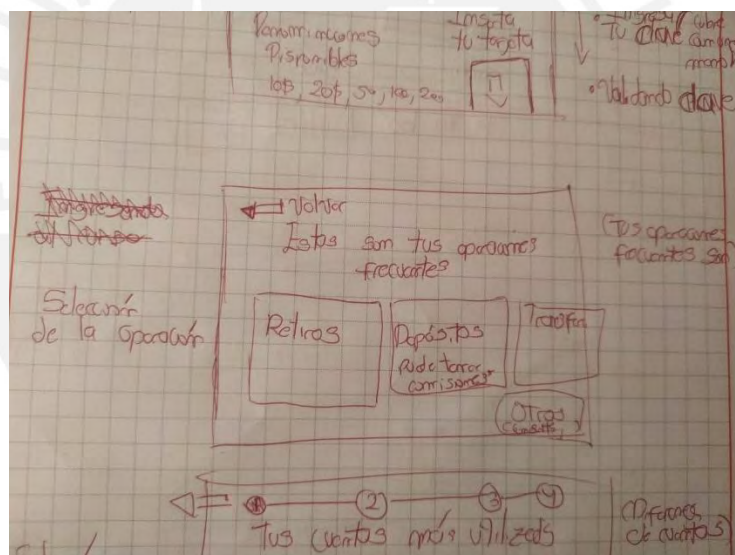 Denominaciones
Disponibles
10$, 20$, 50, 100, 200
Inserta
tu tarjeta
tu clave
• Validando clave
Selección
de la operación
Volver
Estas son tus operaciones
frecuentes
Retiros
Depósitos
puede tener
comisiones
Transfer
Otros
(Tus operaciones
frecuentes son
1 2 3 4
Tus cuentas más utilizads
de cuentas)